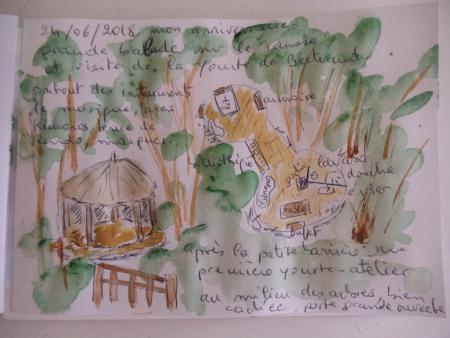 24/06/2018 mon anniversaire
grande balade sur le causse
et visite de la yourte de Bertrand
partout des instruments
de musique, vases
tenue de
kendo, masques
armoire
bibliothèque
lavabo
douche
évier
canapé
table
buffet
après la petite barrière, une
première yourte-atelier
au milieu des arbres, bien
cachée, porte grande ouverte